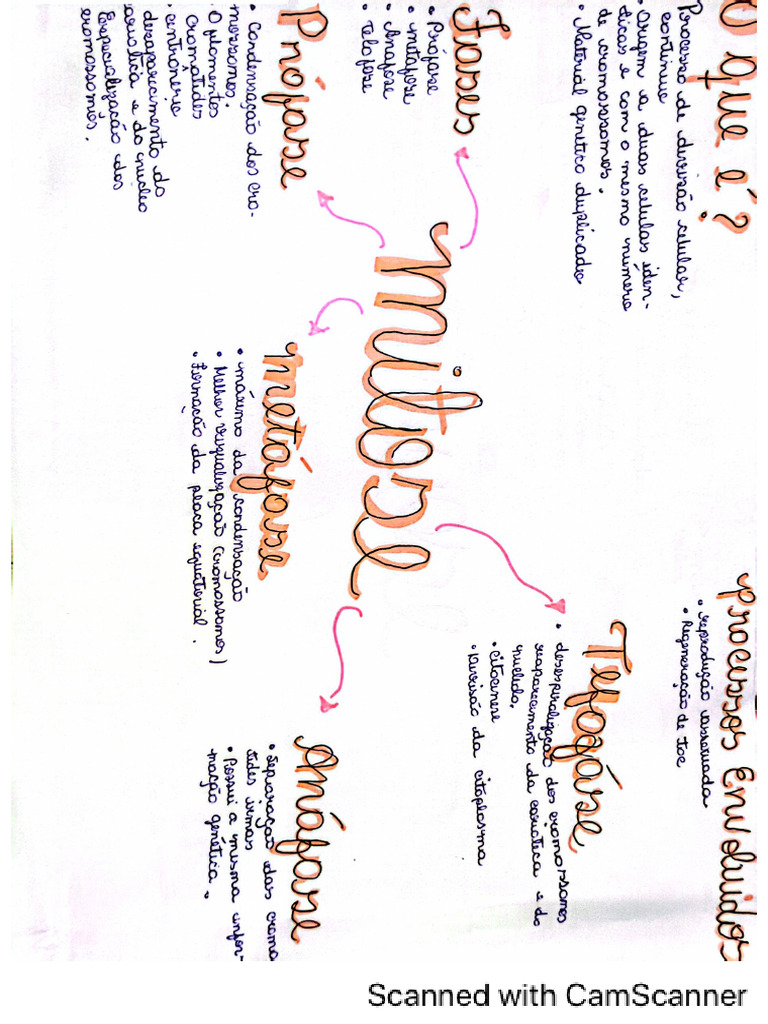 O que é?
Processo de divisão celular,
contínuo
• Origem a duas celulas idên-
ticas e com o mesmo número
de cromossomos.
• Material genético duplicado
Processos Envolvidos
• reprodução assexuada
• Regeneração de
Fases
• Prófase
• metáfase
• Anáfase
• Telófase
mitose
Telófase
• desespiralização dos cromossomos
reaparecimento da carioteca e do
nucléolo,
• citocinese
• divisão do citoplasma
Prófase
• Condensação dos cro-
mossomos.
• O filamentos
Cromatides
• centrômero
desaparecimento do
carioteca e do núcleo
Espiralização dos
cromossomos.
metáfase
• máximo da condensação
• Melhor vizualização (cromossomos)
• Formação da placa equatorial.
Anáfase
• Separação das croma
tides irmas
• Possui a mesma infor-
mação genética.
Scanned with CamScanner